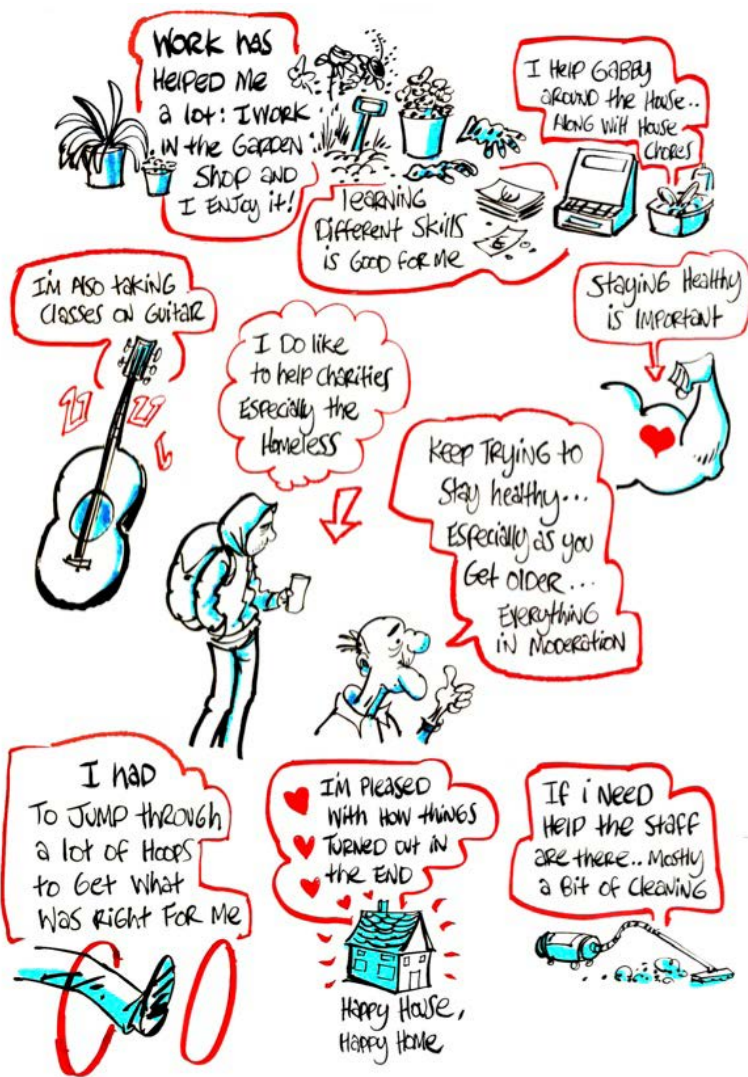 WORK has
HELPED ME
a lot: I WORK
IN the GARDEN
SHOP AND
I ENJOY it!
LEARNING
Different Skills
is GOOD FOR ME
I HELP GABBY
AROUND the HOUSE..
ALONG WitH HOUSE
CHORES
I'M Also taking
Classes on Guitar
I Do like
to help charities
Especially the
Homeless
Staying Healthy
is IMPORTANT
KEEP TRYING to
Stay healthy...
Especially as you
Get OLDER...
EVERYTHING
IN MODERATION
I had
TO JUMP through
a lot of Hoops
to Get What
Was Right For Me
I'M PLEASED
With How things
TURNED out in
the END
Happy House,
Happy Home
If i NEED
Help the Staff
are there.. Mostly
a Bit of Cleaning